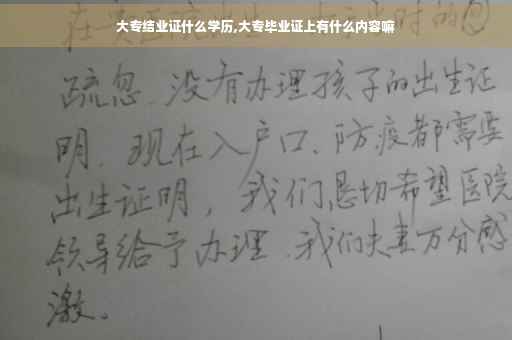 大专结业证什么学历,大专毕业证上有什么内容嘛
疏忽、没有办理孩子的出生证
明、现在入户口、防疫都需要
出生证明，我们恳切希望医院
领导给予办理、我们夫妻万分感
激。